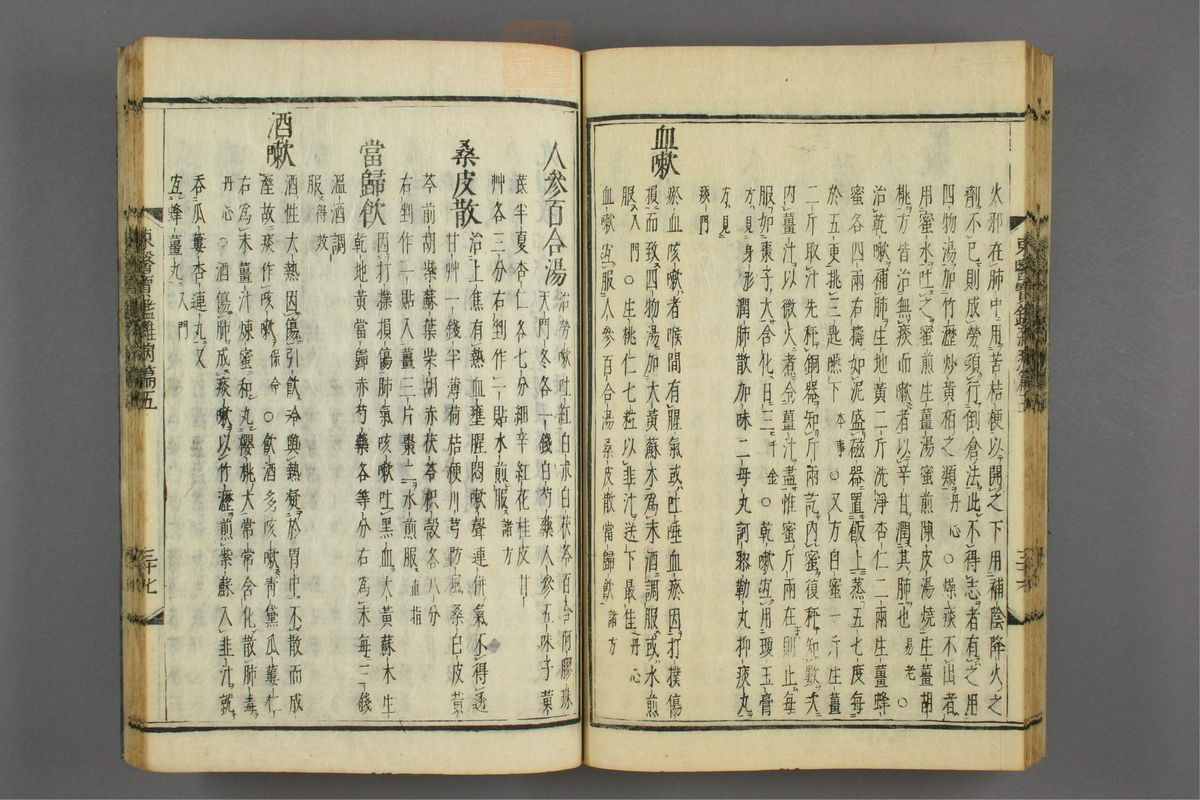 火邪在肺中用苦桔梗以開之下用補陰降火之
劑不已則成勞須行倒倉法此不得志者有之用
四物湯加竹瀝炒黃柏之類丹心○燥痰不出者
用蜜水吐之蜜煎生薑湯蜜煎陳皮湯燒生薑胡
桃方皆治無痰而嗽者以辛甘潤其肺也易老○
治乾嗽補肺生地黃二斤洗淨杏仁二兩生薑蜂
蜜各四兩右擣如泥盛磁器置飯上蒸五七度每
於五更挑三匙嚥下本事○又方白蜜一斤生薑
二斤取汁先秤銅器知斤兩訖內蜜復秤知數次
內薑汁以微火煮令薑汁盡惟蜜斤兩在則止每
服如棗子大含化日三千金○乾嗽宜用瓊玉膏
方見身形潤肺散加味二母丸訶黎勒丸抑痰丸
方見痰門
血嗽
瘀血咳嗽者喉間有腥氣或吐唾血瘀因打撲傷
損而致四物湯加大黃蘇木爲末酒調服或水煎
服入門○生桃仁七粒以韭汁送下最佳丹心
血嗽宜服人參百合湯桑皮散當歸飮諸方
人參百合湯
治勞嗽吐紅白朮白茯苓百合阿膠珠
天門冬各一錢白芍藥人參五味子黃
芪半夏杏仁各七分細辛紅花桂皮甘
艸各三分右剉作一貼水煎服諸方
桑皮散
治上焦有熱血壅腥悶嗽聲連併氣不得透
甘艸一錢半薄荷桔梗川芎防風桑白皮黃
芩前胡柴蘇葉柴胡赤茯苓枳殼各八分
右剉作一貼入薑三片棗二水煎服直指
當歸飮
因打撲損傷肺氣咳嗽吐黑血大黃蘇木生
乾地黃當歸赤芍藥各等分右爲末每三錢
溫酒調
服得效
酒嗽
酒性大熱因傷引飮冷與熱凝於胃中不散而成
溼故痰作咳嗽保命○飮酒多咳嗽青黛瓜蔞仁
右爲末薑汁煉蜜和丸櫻桃大常常含化散肺毒
丹心○酒傷肺成痰嗽以竹瀝煎紫蘇入韭汁就
吞瓜蔞杏連丸又
宜蜂薑丸入門
東醫寶鑑雜病篇五
三十九